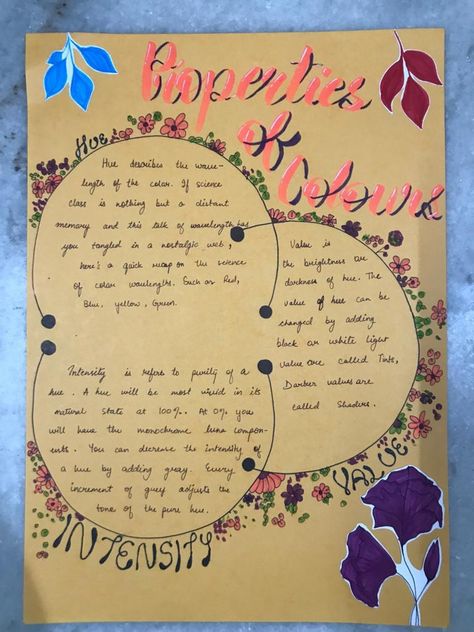 Properties
of
Colours
HUE
Hue describes the wave-
length of the color. If science
class is nothing but a distant
memory and this talk of wavelength has
you tangled in a nostalgic web,
here's a quick recap on the science
of color wavelengths. Such as Red,
Blue, yellow, Green.
Value is
the brightness or
darkness of hue. The
value of hue can be
changed by adding
black or white light
value are called Tints,
Darker values are
called Shaders.
VALUE
Intensity is refers to purity of a
hue. A hue will be most vivid in its
natural state at 100%. At 0% you
will have the monochrome luna compon-
ents. You can decrease the intensity of
a hue by adding gray. Every
increment of grey adjusts the
tone of the pure hue.
INTENSITY